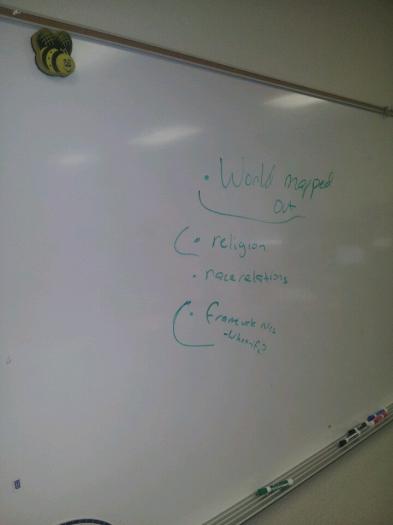 • World mapped
out
• religion
• race relations
• framework